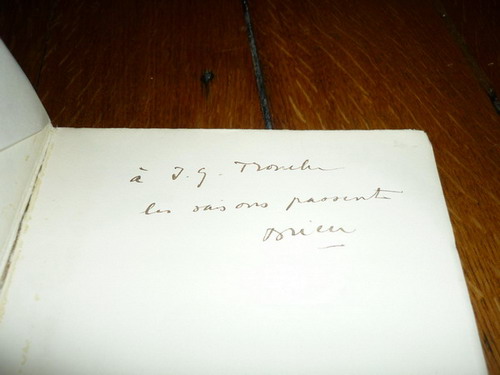 à J. G. Tronche
les saisons passent
Drieu